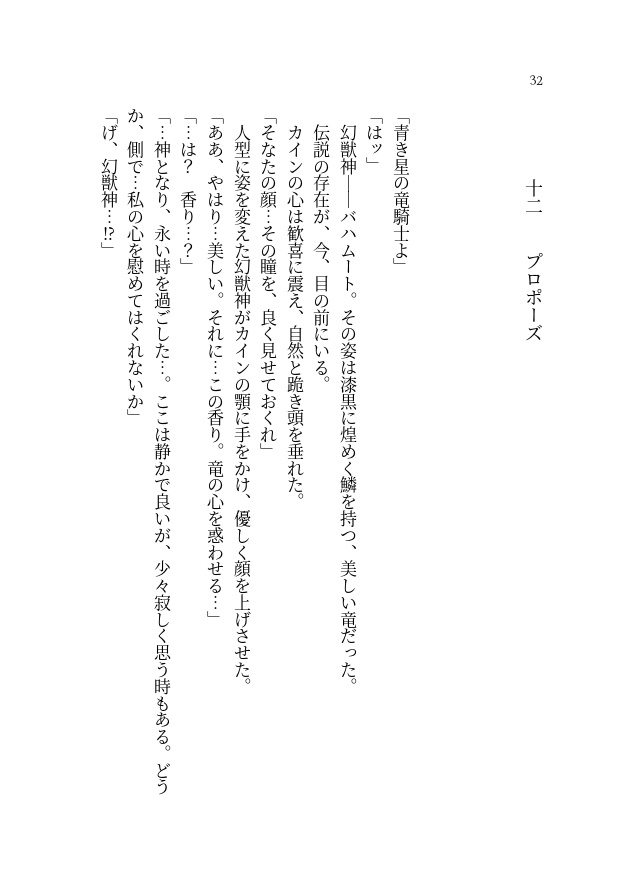 32
十二　プロポーズ
「青き星の竜騎士よ」
「はッ」
　幻獣神――バハムート。その姿は漆黒に煌めく鱗を持つ、美しい竜だった。
　伝説の存在が、今、目の前にいる。
　カインの心は歓喜に震え、自然と跪き頭を垂れた。
「そなたの顔…その瞳を、良く見せておくれ」
　人型に姿を変えた幻獣神がカインの顎に手をかけ、優しく顔を上げさせた。
「ああ、やはり…美しい。それに…この香り。竜の心を惑わせる…」
「…は？　香り…？」
「…神となり、永い時を過ごした…。ここは静かで良いが、少々寂しく思う時もある。どう
か、側で…私の心を慰めてはくれないか」
「げ、幻獣神…!?」